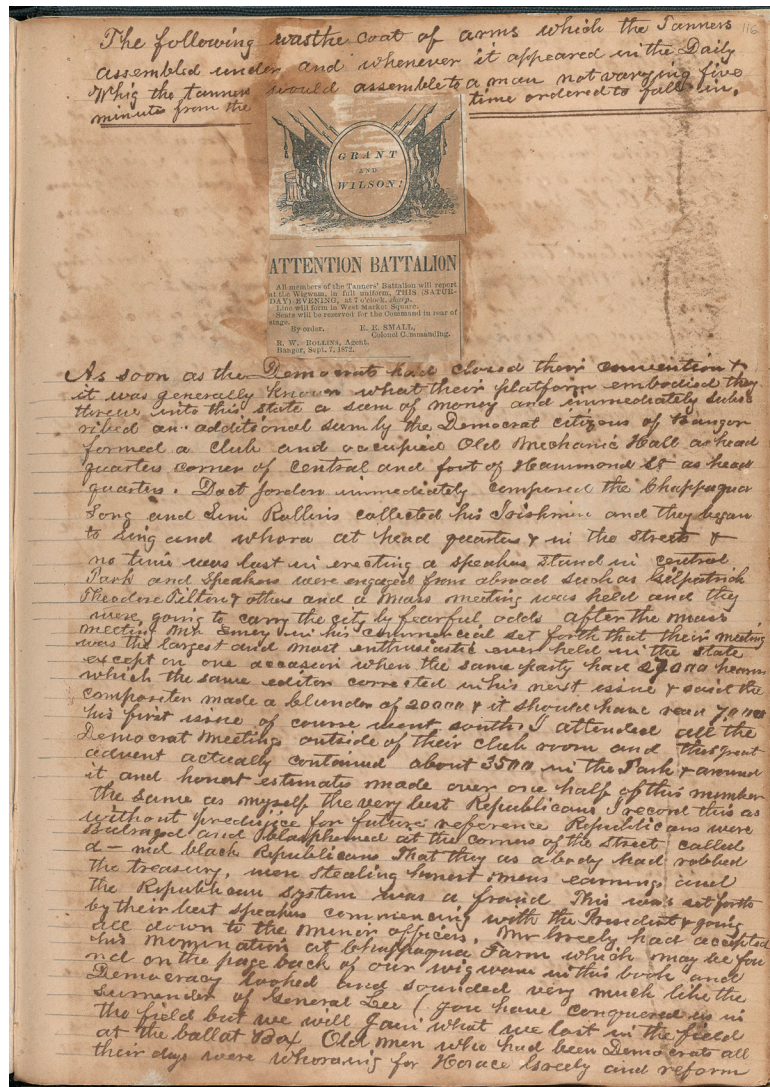 116
The following was the coat of arms which the Tanners
assembled under and whenever it appeared in the Daily
Whig the tanners would assemble to a man not varying five
minutes from the time ordered to fall in.
GRANT
AND
WILSON!
ATTENTION BATTALION
All members of the Tanners' Battalion will report
at the Wigwam, in full uniform, THIS (SATUR-
DAY) EVENING, at 7 o'clock, sharp.
Line will form in West Market Square.
Seats will be reserved for the Command in rear of
stage.
By order. E. E. SMALL,
Colonel Commanding.
R. W. ROLLINS, Agent.
Bangor, Sept. 7, 1872.
As soon as the Democrats had closed their convention &
it was generally known what their platform embodied they
threw into this state a sum of money and immediately subs
ribed an additional sum by the Democrat citizens of Bangor
formed a club and occupied Old Mechanic Hall as head
quarters corner of Central and foot of Hammond St as head
quarters. Doct Jorden immediately composed the Chappaqua
Song and Rollins collected his Irishmen and they began
to Sing and whora at head quarters & in the streets &
no time was lost in erecting a speakers stand in central
Park and Speakers were engaged from abroad such as Gilpatrick
Theodore Tilton & others and a mass meeting was held and they
were going to carry the city by fearful odds after the mass
meeting Mr Emery in his commercial set forth that their meeting
was the largest and most enthusiastic ever held in the state
except on one occasion when the same party had 27000 hearers
which the same editor corrected in his next issue & said the
compositer made a blunder of 20000 & it should have read 7,000
his first issue of course went south. I attended all the
Democrat Meetings outside of their club room and this great
advent actually contained about 3500 in the Park & around
it and honest estimates made over one half of this number
the same as myself the very best Republicans I record this as
without predijice for future reference Republicans were
and Blasphemed at the corners of the street called
d—nd black Republicans. That they as a body had robbed
the treasury, were stealing honest mens earnings and
the Republican System was a fraud This was set forth
by their best speakers commencing with the President & going
all down to the minor officers. Mr Greely had accepted
his Nomination at Chappaqua Farm which may be fou
nd on the page back of our wigwam in this book and
Democracy looked and sounded very much like the
surrender of General Lee (you have conquered us in
the field but we will gain what we lost in the field
at the ballot Box. Old men who had been Democrats all
their days were whoraing for Horace Greely and reform